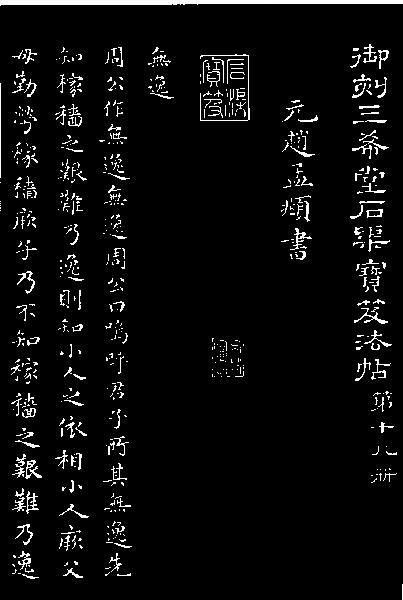 御刻三希堂石渠寶笈法帖第十九册
元趙孟頫書
石渠寶笈
無逸
周公作無逸無逸周公曰嗚呼君子所其無逸先
知稼穡之艱難乃逸則知小人之依相小人厥父
母勤勞稼穡厥子乃不知稼穡之艱難乃逸